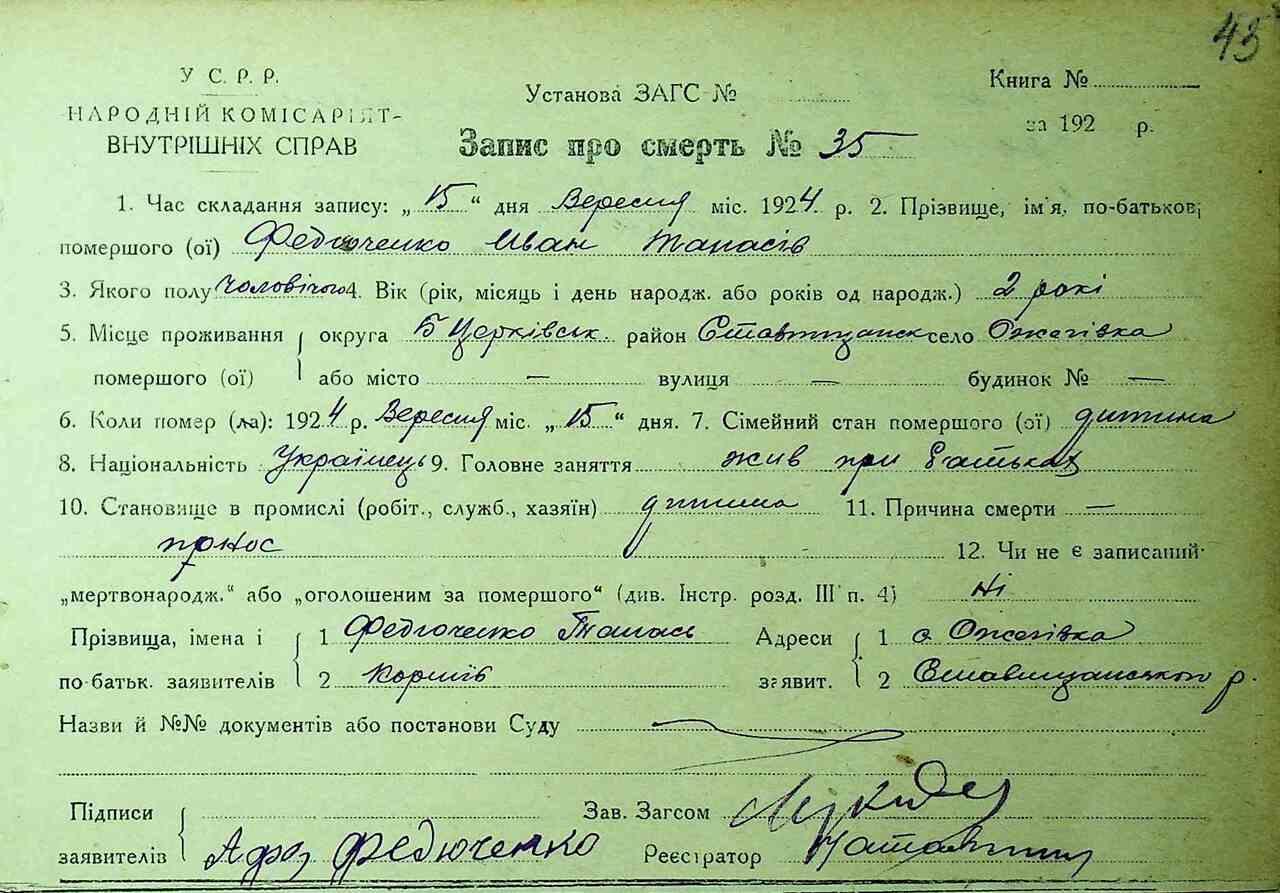 43
У С. Р. Р.
НАРОДНІЙ КОМІСАРІЯТ-
ВНУТРІШНІХ СПРАВ
Установа ЗАГС №
Книга №
за 192 р.
Запис про смерть № 35
1. Час складання запису: „15“ дня Вересня міс. 1924 р. 2. Прізвище, ім'я, по-батькові
помершого (ої) Федюченко Иван Танасів
3. Якого полу чоловічого 4. Вік (рік, місяць і день народж. або років од народж.) 2 рокі
5. Місце проживання округа Б Церківськ район Ставищанск село Ожегівка
помершого (ої) або місто — вулиця — будинок № —
6. Коли помер (ла): 1924 р. Вересня міс. „15“ дня. 7. Сімейний стан помершого (ої) дитина
8. Національність Українець 9. Головне заняття жив при батьках
10. Становище в промислі (робіт., служб., хазяїн) дитина 11. Причина смерти —
пронос 12. Чи не є записаний
„мертвонародж.“ або „оголошеним за помершого“ (див. Інстр. розд. III п. 4) Ні
Прізвища, імена і 1 Федюченко Танась Адреси 1 с. Ожегівка
по-батьк. заявителів 2 Корнів заявит. 2 Ставищанського р.
Назви й №№ документів або постанови Суду
Підписи Зав. Загсом
заявителів Федюченко Реєстратор